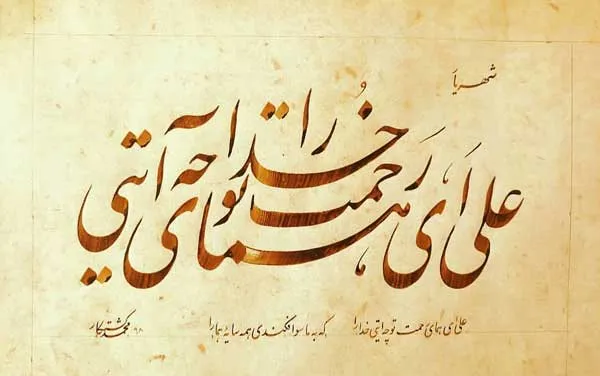 شهریار
علی ای همای رحمت تو چه آیتی خدا را
علی ای همای رحمت تو چه آیتی خدا را که به ما سوا فکندی همه سایهٔ هما را
محمد کشتکار ۹۸